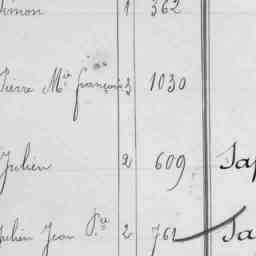 Simon 1 362
Pierre Mie françoise 3 1030
Julien 2 609 Sap
Julien Jean Pre 2 761 Sa